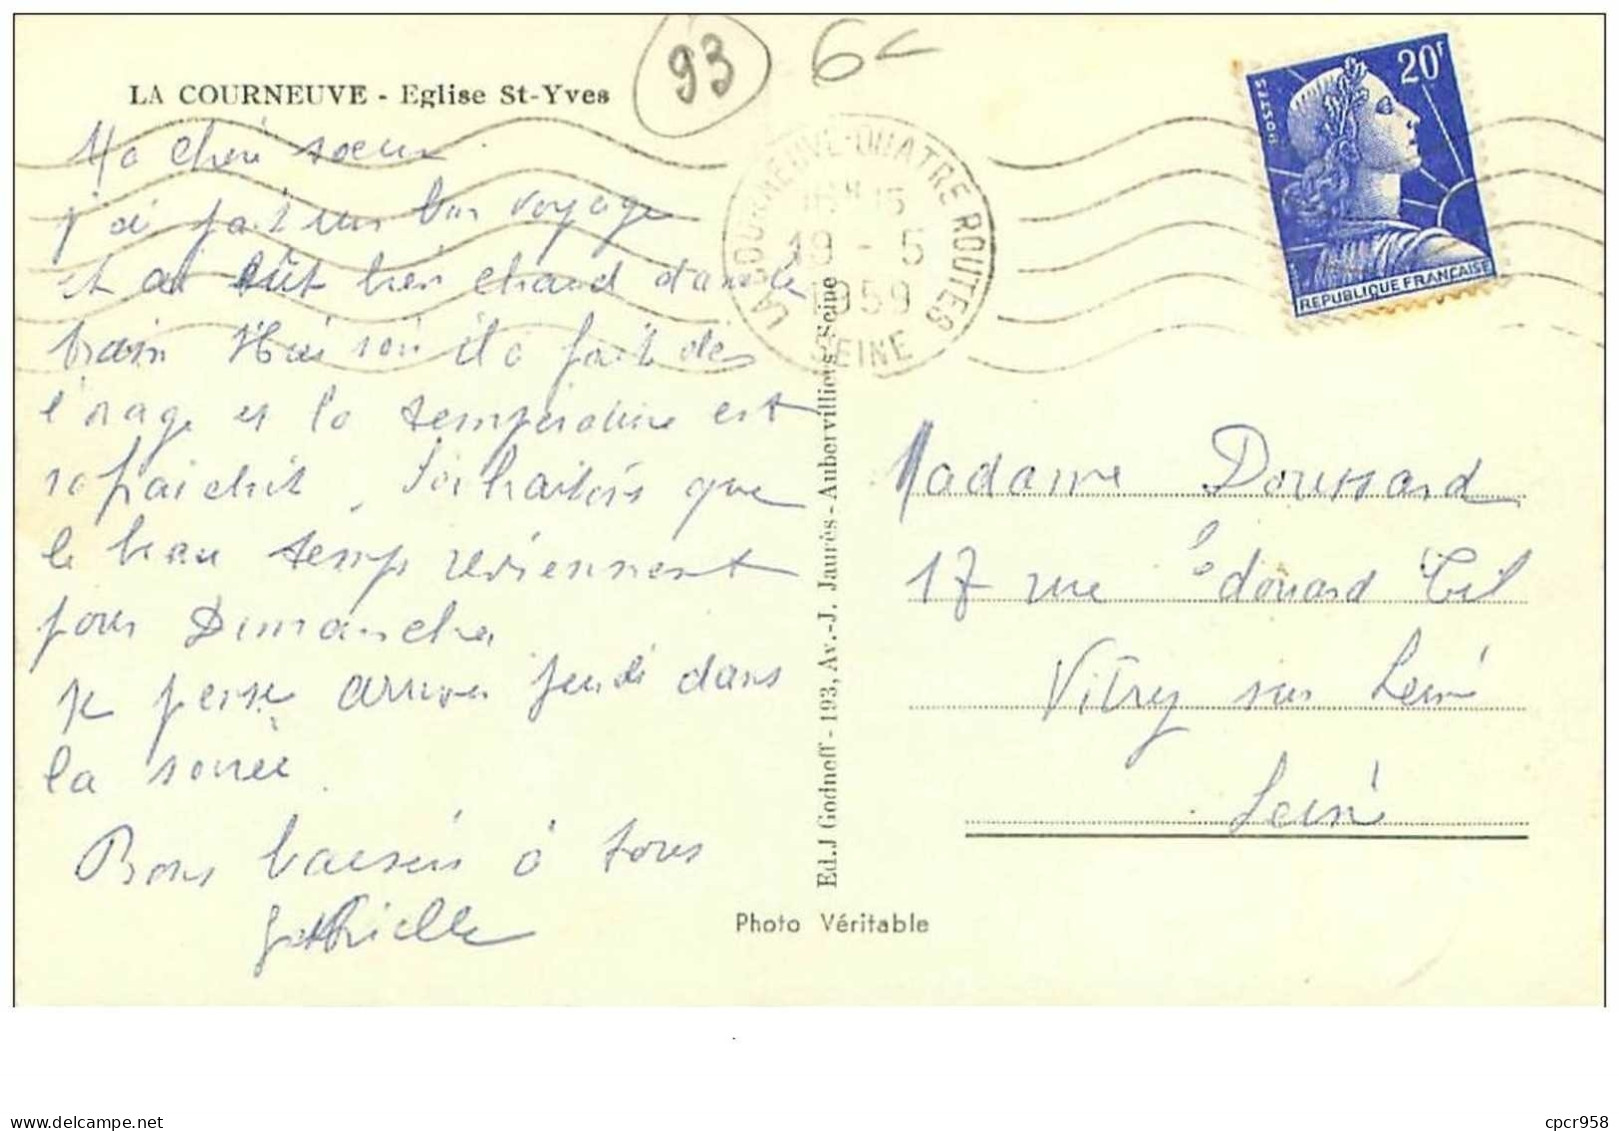 LA COURNEUVE - Eglise St-Yves
93
6
20F
POSTES
REPUBLIQUE FRANÇAISE
LA COURNEUVE-QUATRE ROUTES
16H15
19 - 5
1959
SEINE
Ma chère soeur
j'ai fait un bon voyage
et ai eût bien chaud dans le
train Hier soir il a fait de
l'orage et la température est
rafraichit. Souhaitons que
le beau temp reviennent
pour Dimanche
je pense arriver jeudi dans
la soirée
Bons baisers à tous
Gabrielle
Ed. J Godneff - 193, Av.-J. Jaurès - Aubervilliers Seine
Photo Véritable
Madame Doussard
17 rue Édouard Til
Vitry sur Seine
Seine
delcampe.net
cpcr958